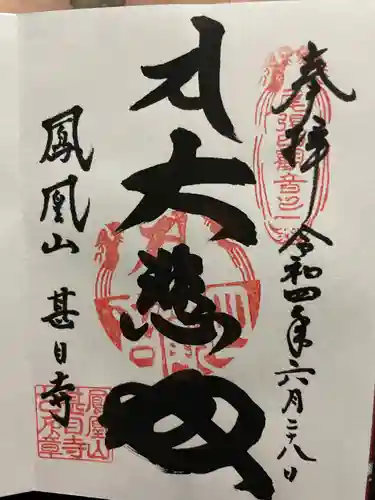 奉拝
令和四年六月二十八日
大悲殿
鳳凰山 甚目寺
尾張四観音之一
鳳凰山
甚目寺